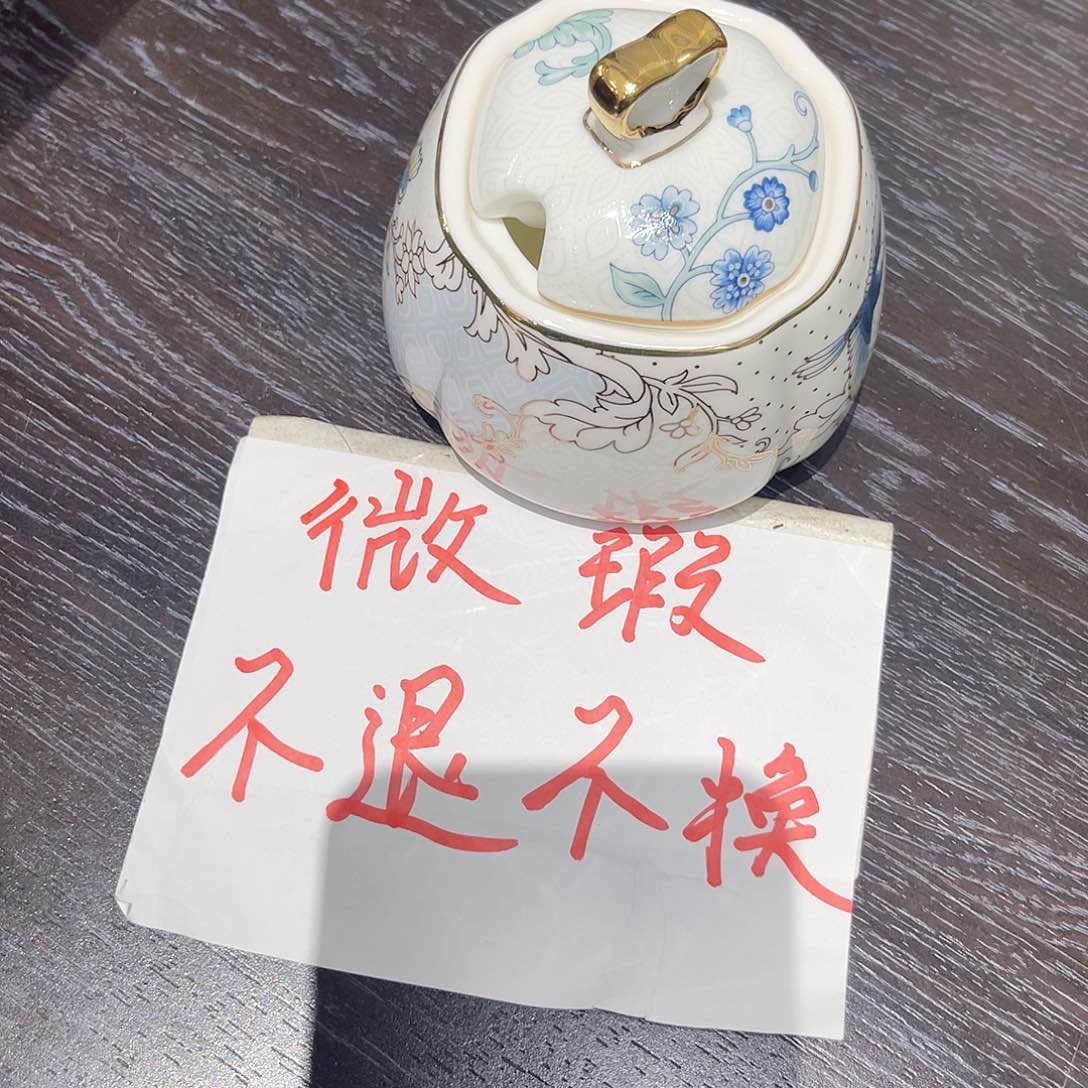 微瑕
不退不换